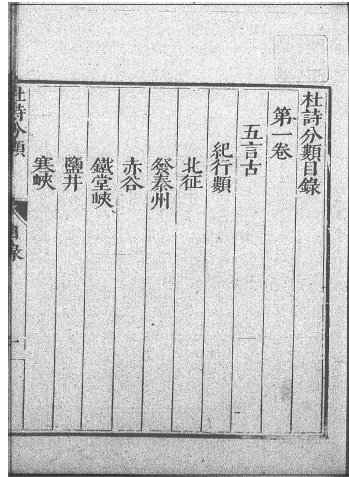 杜詩分類目錄
第一卷
五言古
紀行類
北征
發秦州
赤谷
鐵堂峽
鹽井
寒峽
杜詩分類
目錄
一